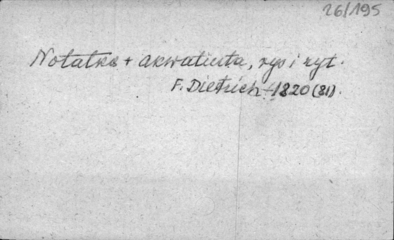 26/195
Notatka + akwatinta, rys i ryt.
F. Dietrich - 1820 (81).